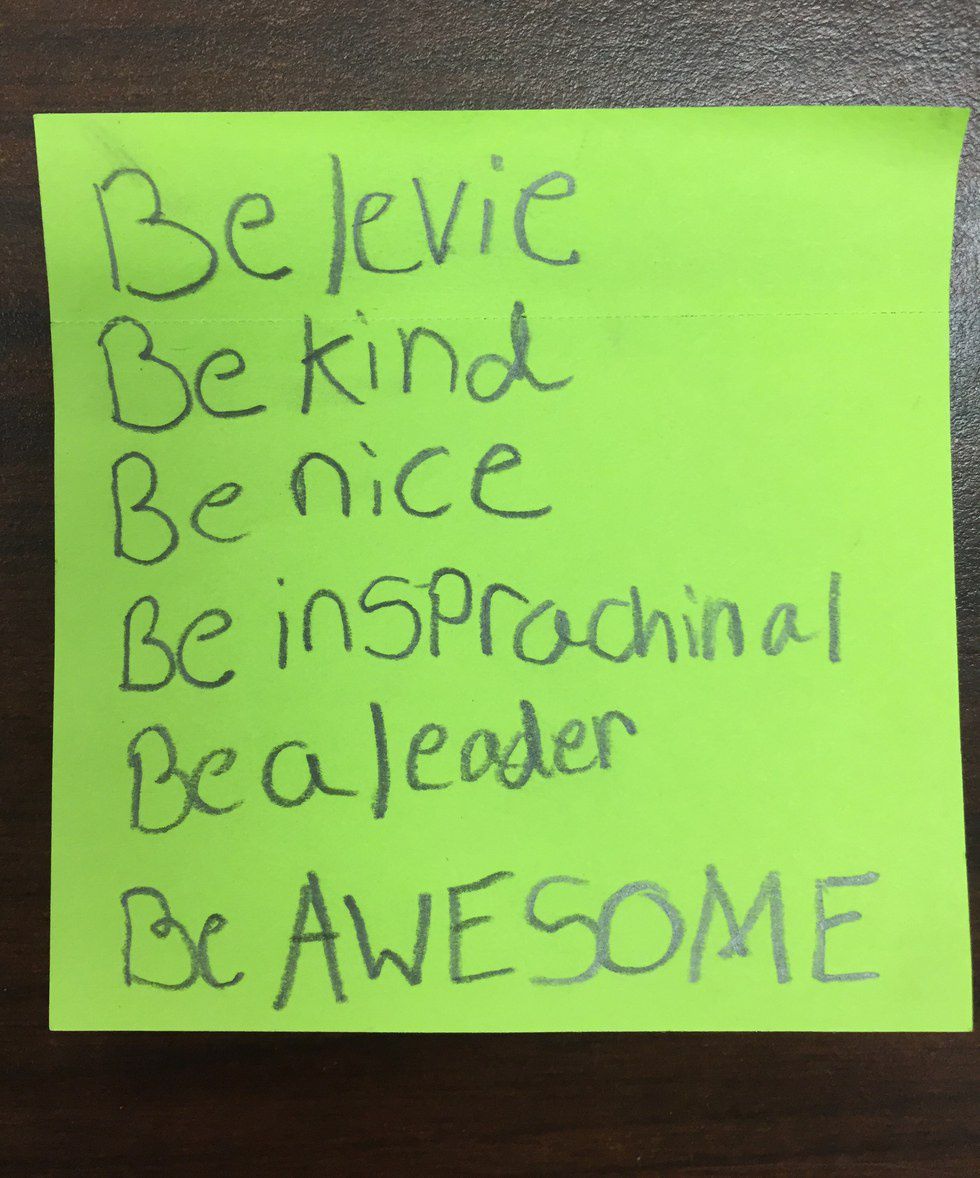 Belevie
Be kind
Be nice
Be insprachinal
Be a leader
Be AWESOME